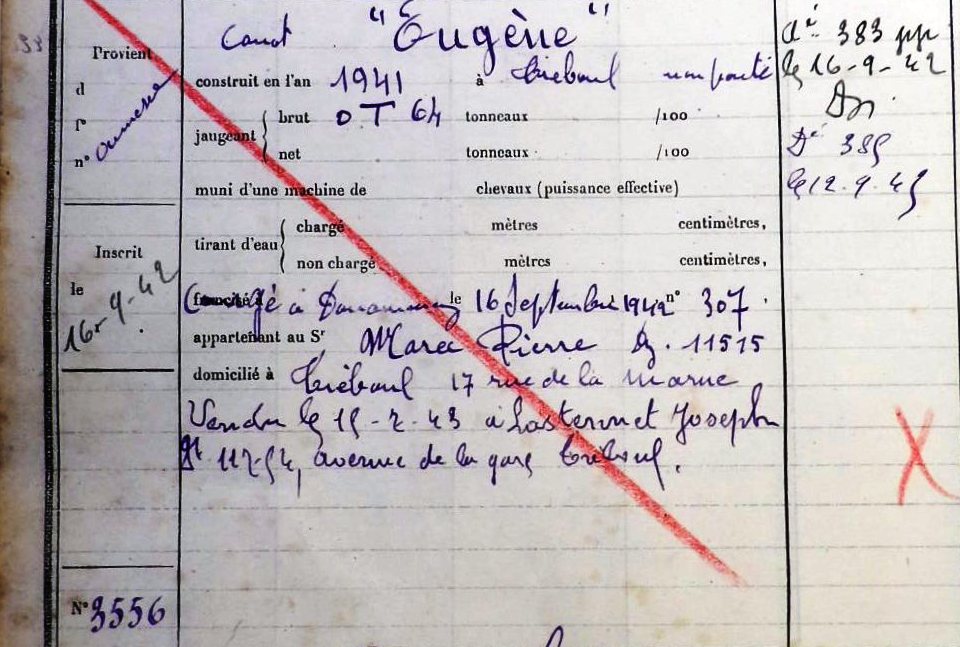 Provient
d
l'
n°
Inscrit
le
16-9-42
N° 3556
Canot "Eugène"
construit en l'an 1941 à Tréboul non ponté
jaugeant { brut 0 T 64 tonneaux /100
net tonneaux /100
muni d'une machine de chevaux (puissance effective)
tirant d'eau { chargé mètres centimètres,
non chargé mètres centimètres,
à Douarnenez le 16 Septembre 1942 n° 307.
appartenant au Sr Marec Pierre Dz. 11515
domicilié à Tréboul 17 rue de la Marne
Vendu le 15-2-43 à Lastennet Joseph
avenue de la gare Tréboul.
Dé 383 pp
le 16-9-42
Dé 385
le 12.9.45